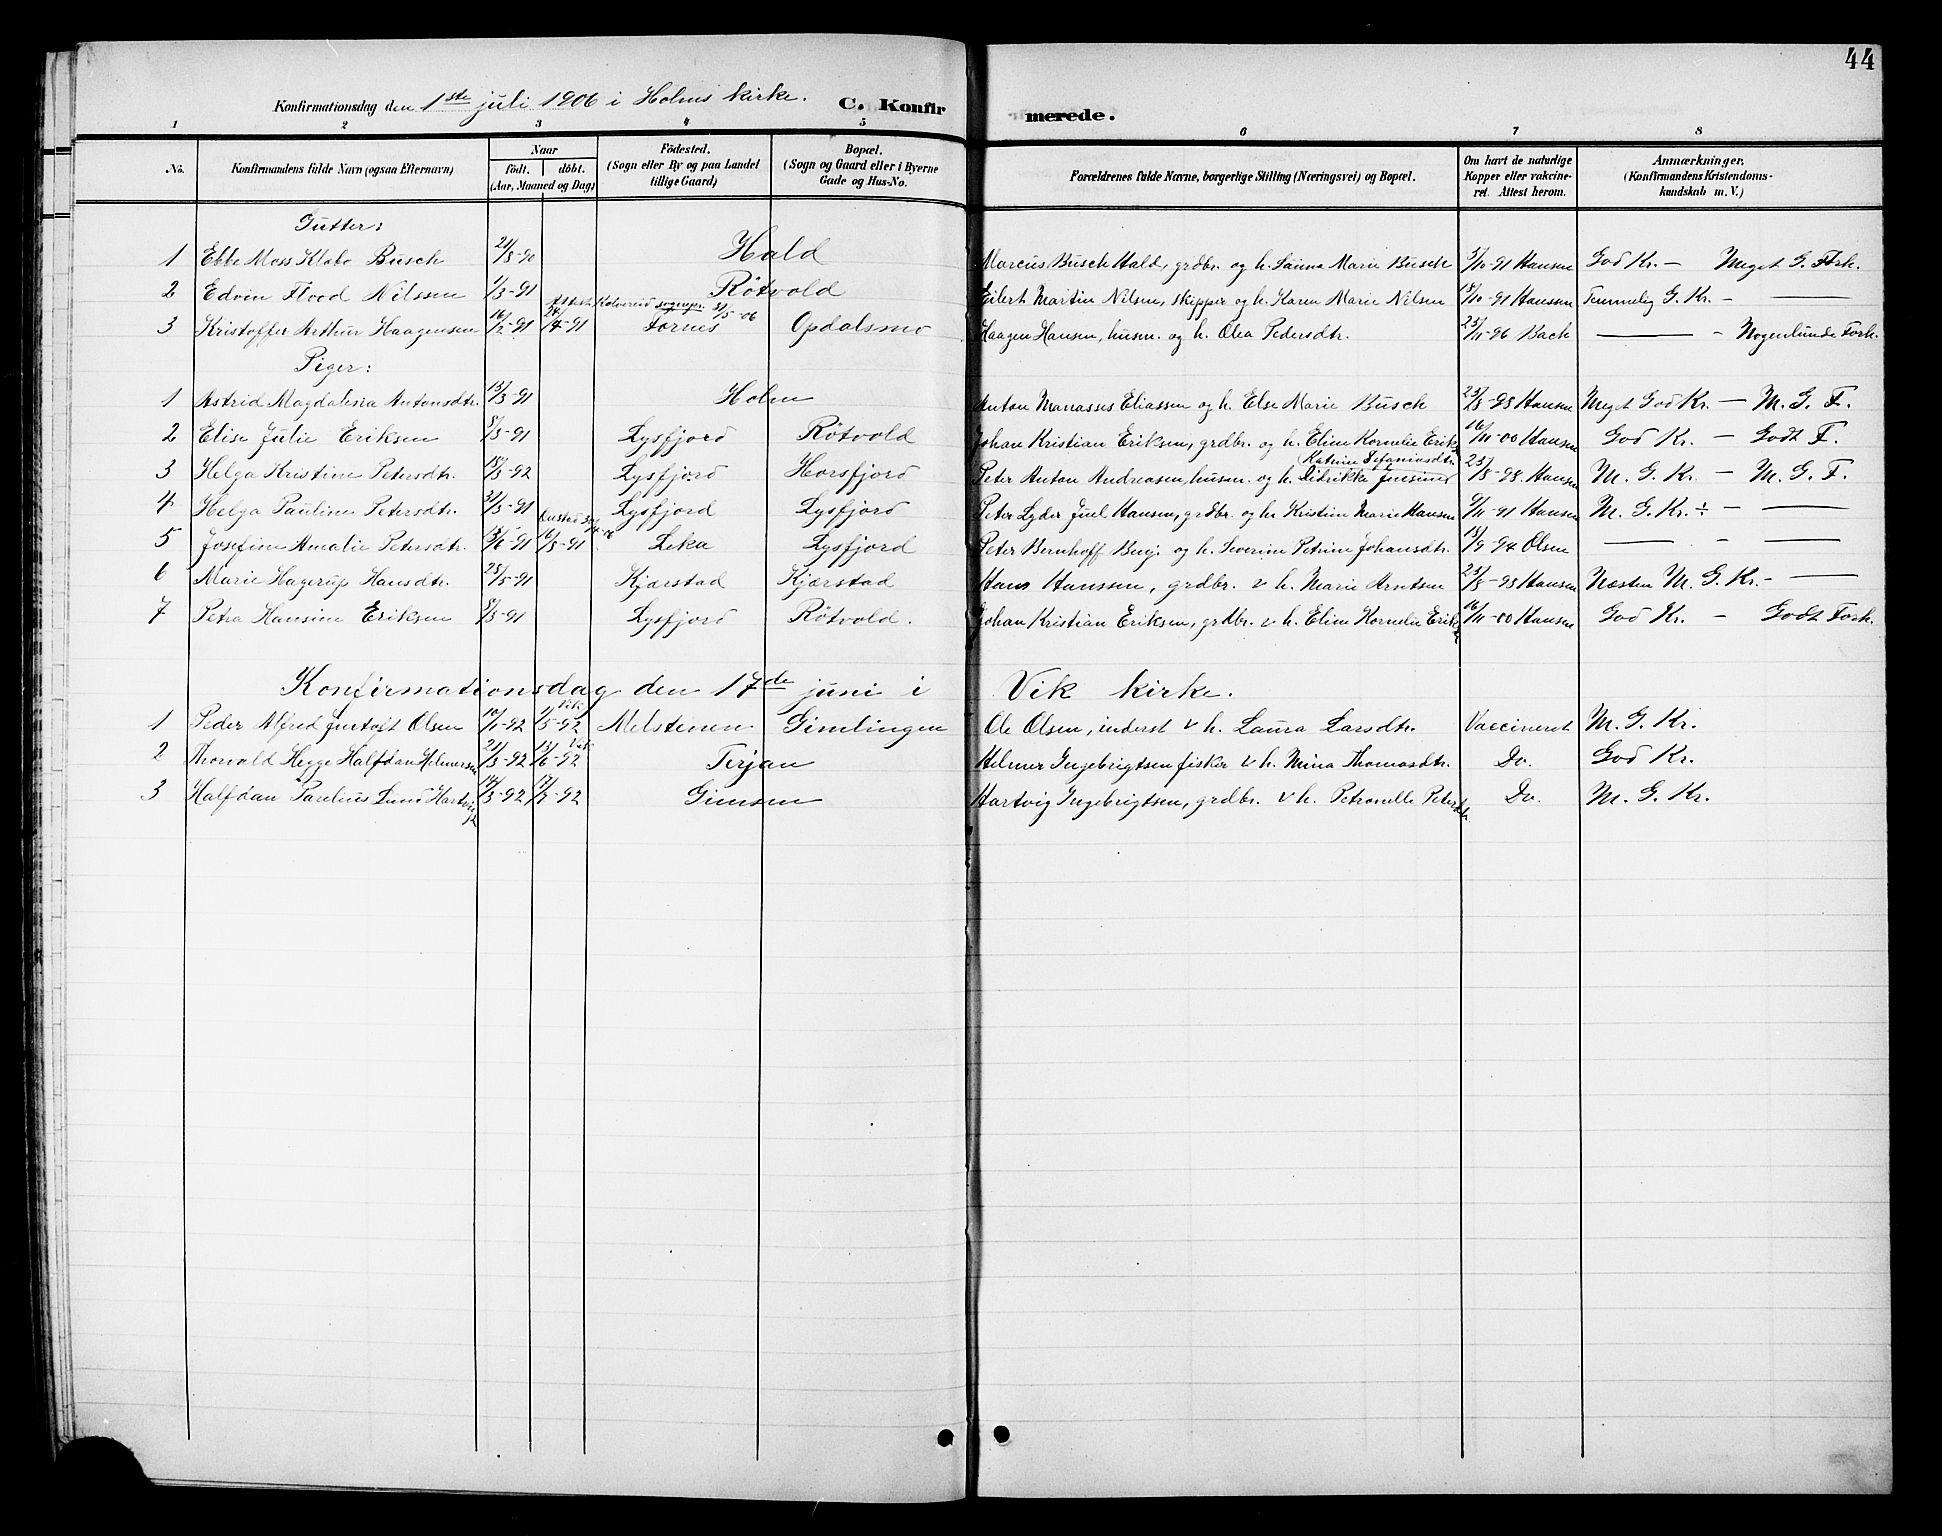 44
Konfirmationsdag den 1ste juli 1906 i Holms kirke. C. Konfirmerede.
1 2 3 4 5 6 7 8
No. Konfirmandens fulde Navn (ogsaa Efternavn) Naar födt. döbt. (Aar, Maaned og Dag) Födested. (Sogn eller By og paa Landet tillige Gaard) Bopæl. (Sogn og Gaard eller i Byerne Gade og Hus-No. Forældrenes fulde Navne, borgerlige Stilling (Næringsvei) og Bopæl. Om havt de naturlige Kopper eller vakcineret. Attest herom. Anmærkninger. (Konfirmandens Kristendomskundskab m. V.)
Gutter:
1 Ebbe Moss Klabo Busch 21/8-90 Hald Marcus Busch Hald, grdbr. og h. Marie Busch 3/10-91 Hansen God Kr. — Meget G. Forh.
2 Edvin Flood Nilssen 1/3-91 Rötvold Eilert Martin Nilsen, skipper og h. Karen Marie Nilsen 18/10-91 Hanssen Temmelig G. Kr. — —
Attest Kolvereid sognepr. 31/5-06
3 Kristoffer Arthur Haagensen 16/2-91 24/4-91 Fornes Opdalsmo Haagen Hansen, husm. og h. Olea Pedersdtr. 25/11-96 Bach — - Nogenlunde Forh.
Piger:
1 Astrid Magdalena Antonsdtr. 13/3-91 Holm Anton Manasses Eliassen og h. Else Marie Busch 25/8-98 Hansen Meget God Kr. — M. G. F.
2 Elise Julie Eriksen 8/5-91 Lysfjord Rötvold Johan Kristian Eriksen, grdbr. og h. Eline Kornelie Eriks 16/11-00 Hansen God Kr. — Godt F.
Katrine Stefaniasdtr.
3 Helga Kristine Petersdtr. 18/3-92 Lysfjord Horsfjord Peter Anton Andreasen, husm. og h. Didrikke 25/8-98 Hansen M. G. Kr. — M. G. F.
4 Helga Pauline Petersdtr. 31/3-91 Lysfjord Lysfjord Peter Lyder Juel Hansen, grdbr. og h. Kristine Marie Hansen 9/11-91 Hansen M. G. Kr. ÷ — —
5 Josefine Amalie Petersdtr. 13/6-91 16/8-91 Leka Lysfjord Peter Bernhoff Benj. og h. Severine Petrine Johansdtr. 15/9-94 Olsen — - —
6 Marie Hagerup Hansdtr. 28/5-91 Kjærstad Kjærstad Hans Hanssen, grdbr. v h. Marie Arntsen 25/8-98 Hansen Næsten M. G. Kr. - —
7 Petra Hansine Eriksen 8/5-91 Lysfjord Rötvold. Johan Kristian Eriksen, grdbr. v h. Eline Kornelie Eriks 16/11-00 Hansen God Kr. — Godt Forh.
Konfirmationsdag den 17de juni i Vik kirke.
1 Peder Alfred Olsen 10/1-92 1/5-92 Vik Melstenen Gimlingen Ole Olsen, inderst v h. Laura Larsdtr. Vaccineret M. G. Kr.
2 Thorvald Hegge Halfdan Helmersen 21/3-92 12/6-92 Vik Terjan Helmer Ingebrigtsen fisker v h. Mina Thomasdtr. Do. God Kr.
3 Halfdan Paulius Lund Hartvigs 14/3-92 17/7-92 Gimsen Hartvig Ingebrigtsen, grdbr. v h. Petronelle Petersdtr. Do. M. G. Kr.